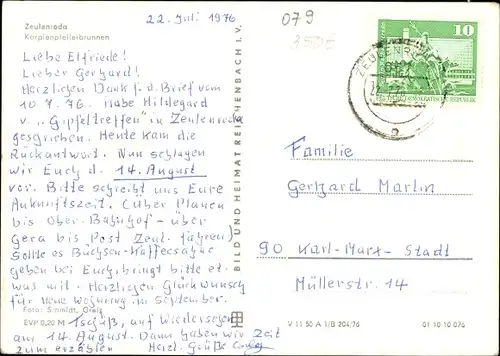 Zeulenroda
Karpfenpfeilerbrunnen
22. Juli 1976
079
Liebe Elfriede!
Lieber Gerhard!
Herzlichen Dank f. d. Brief vom
10.7.76. Habe Hildegard
v. „Gipfeltreffen" in Zeulenroda
gesgrieben. Heute kam die
Rückantwort. Nun schlagen
wir Euch d. 14. August
vor. Bitte schreibt uns Eure
Ankunftszeit. (über Plauen
bis Ober-Bahnhof - über
Gera bis Post Zeul. fahren)
Sollte es Büchsen-Kaffeesahne
geben bei Euch, bringt bitte et-
was mit. Herzlichen Glückwunsch
für neue Wohnung im September.
Foto: Schmidt, Greiz
EVP 0,20 M
Tschüß, auf Wiedersehen
am 14. August. Dann haben wir Zeit
zum erzählen Herzl. Grüße
BILD UND HEIMAT REICHENBACH I. V.
10
DEUTSCHE DEMOKRATISCHE REPUBLIK
ZEULENRODA
Familie
Gerhard Martin
90 Karl-Marx-Stadt
Müllerstr. 14
V 11 50 A 1/B 204/76 01 10 10 076